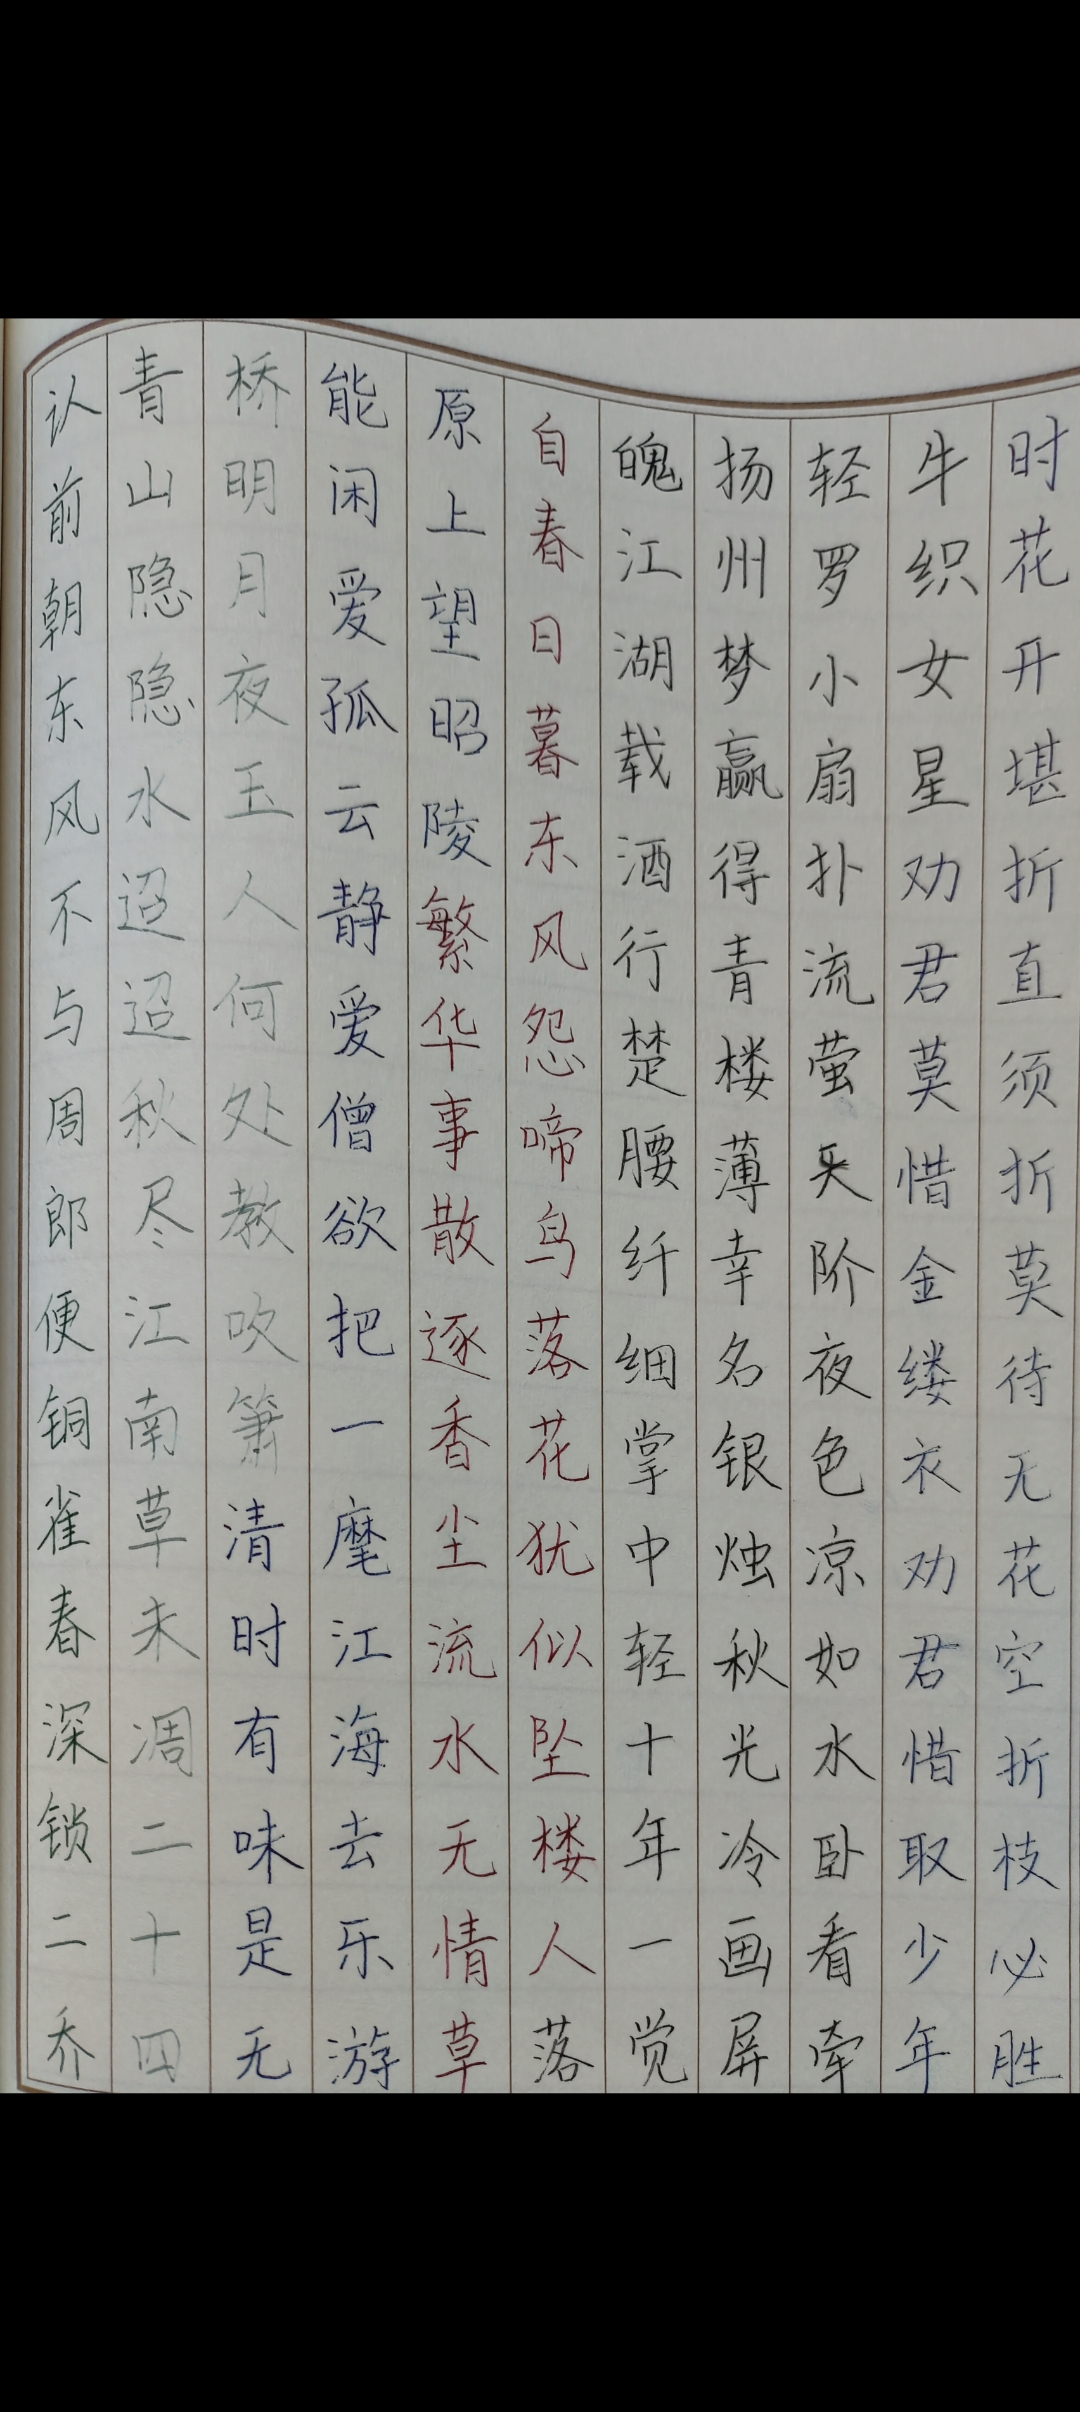 认前朝东风不与周郎便铜雀春深锁二乔
青山隐隐水迢迢秋尽江南草未凋二十四
桥明月夜玉人何处教吹箫清时有味是无
能闲爱孤云静爱僧欲把一麾江海去乐游
原上望昭陵繁华事散逐香尘流水无情草
自春日暮东风怨啼鸟落花犹似坠楼人落
魄江湖载酒行楚腰纤细掌中轻十年一觉
扬州梦赢得青楼薄幸名银烛秋光冷画屏
轻罗小扇扑流萤天阶夜色凉如水卧看牵
牛织女星劝君莫惜金缕衣劝君惜取少年
时花开堪折直须折莫待无花空折枝必胜